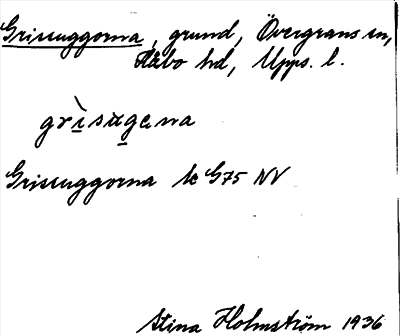 Grissuggorna, grund, Övergrans sn,
Håbo hd, Upps. l.
grìsu̇gɐna
Grissuggorna lc G75 NV
Stina Holmström 1936